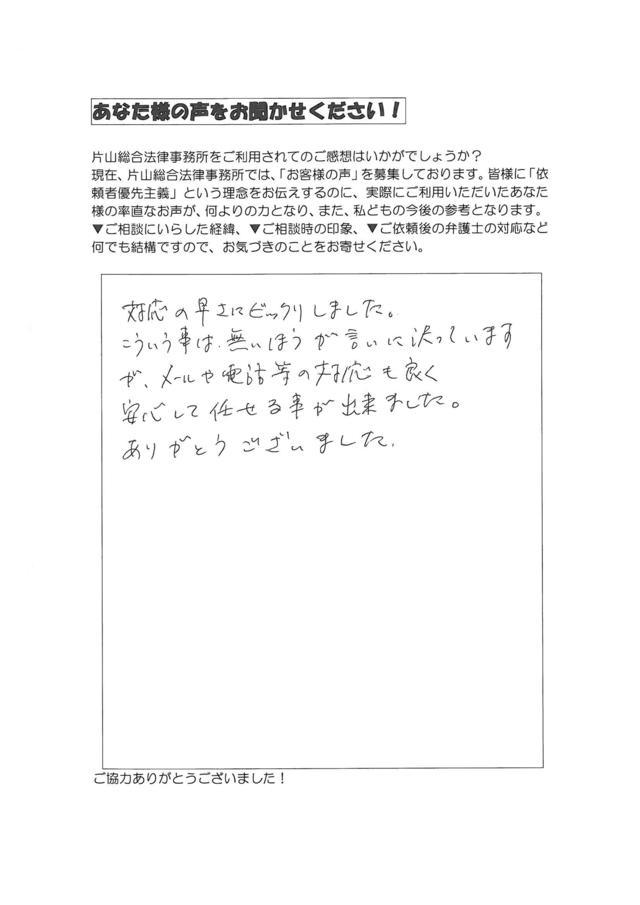 あなた様の声をお聞かせください！
片山総合法律事務所をご利用されてのご感想はいかがでしょうか？
現在、片山総合法律事務所では、「お客様の声」を募集しております。皆様に「依
頼者優先主義」という理念をお伝えするのに、実際にご利用いただいたあなた
様の率直なお声が、何よりの力となり、また、私どもの今後の参考となります。
▼ご相談にいらした経緯、▼ご相談時の印象、▼ご依頼後の弁護士の対応など
何でも結構ですので、お気づきのことをお寄せください。
対応の早さにビックリしました。
こういう事は、無いほうが言いに決っています
が、メールや電話等の対応も良く
安心して任せる事が出来ました。
ありがとうございました。
ご協力ありがとうございました！